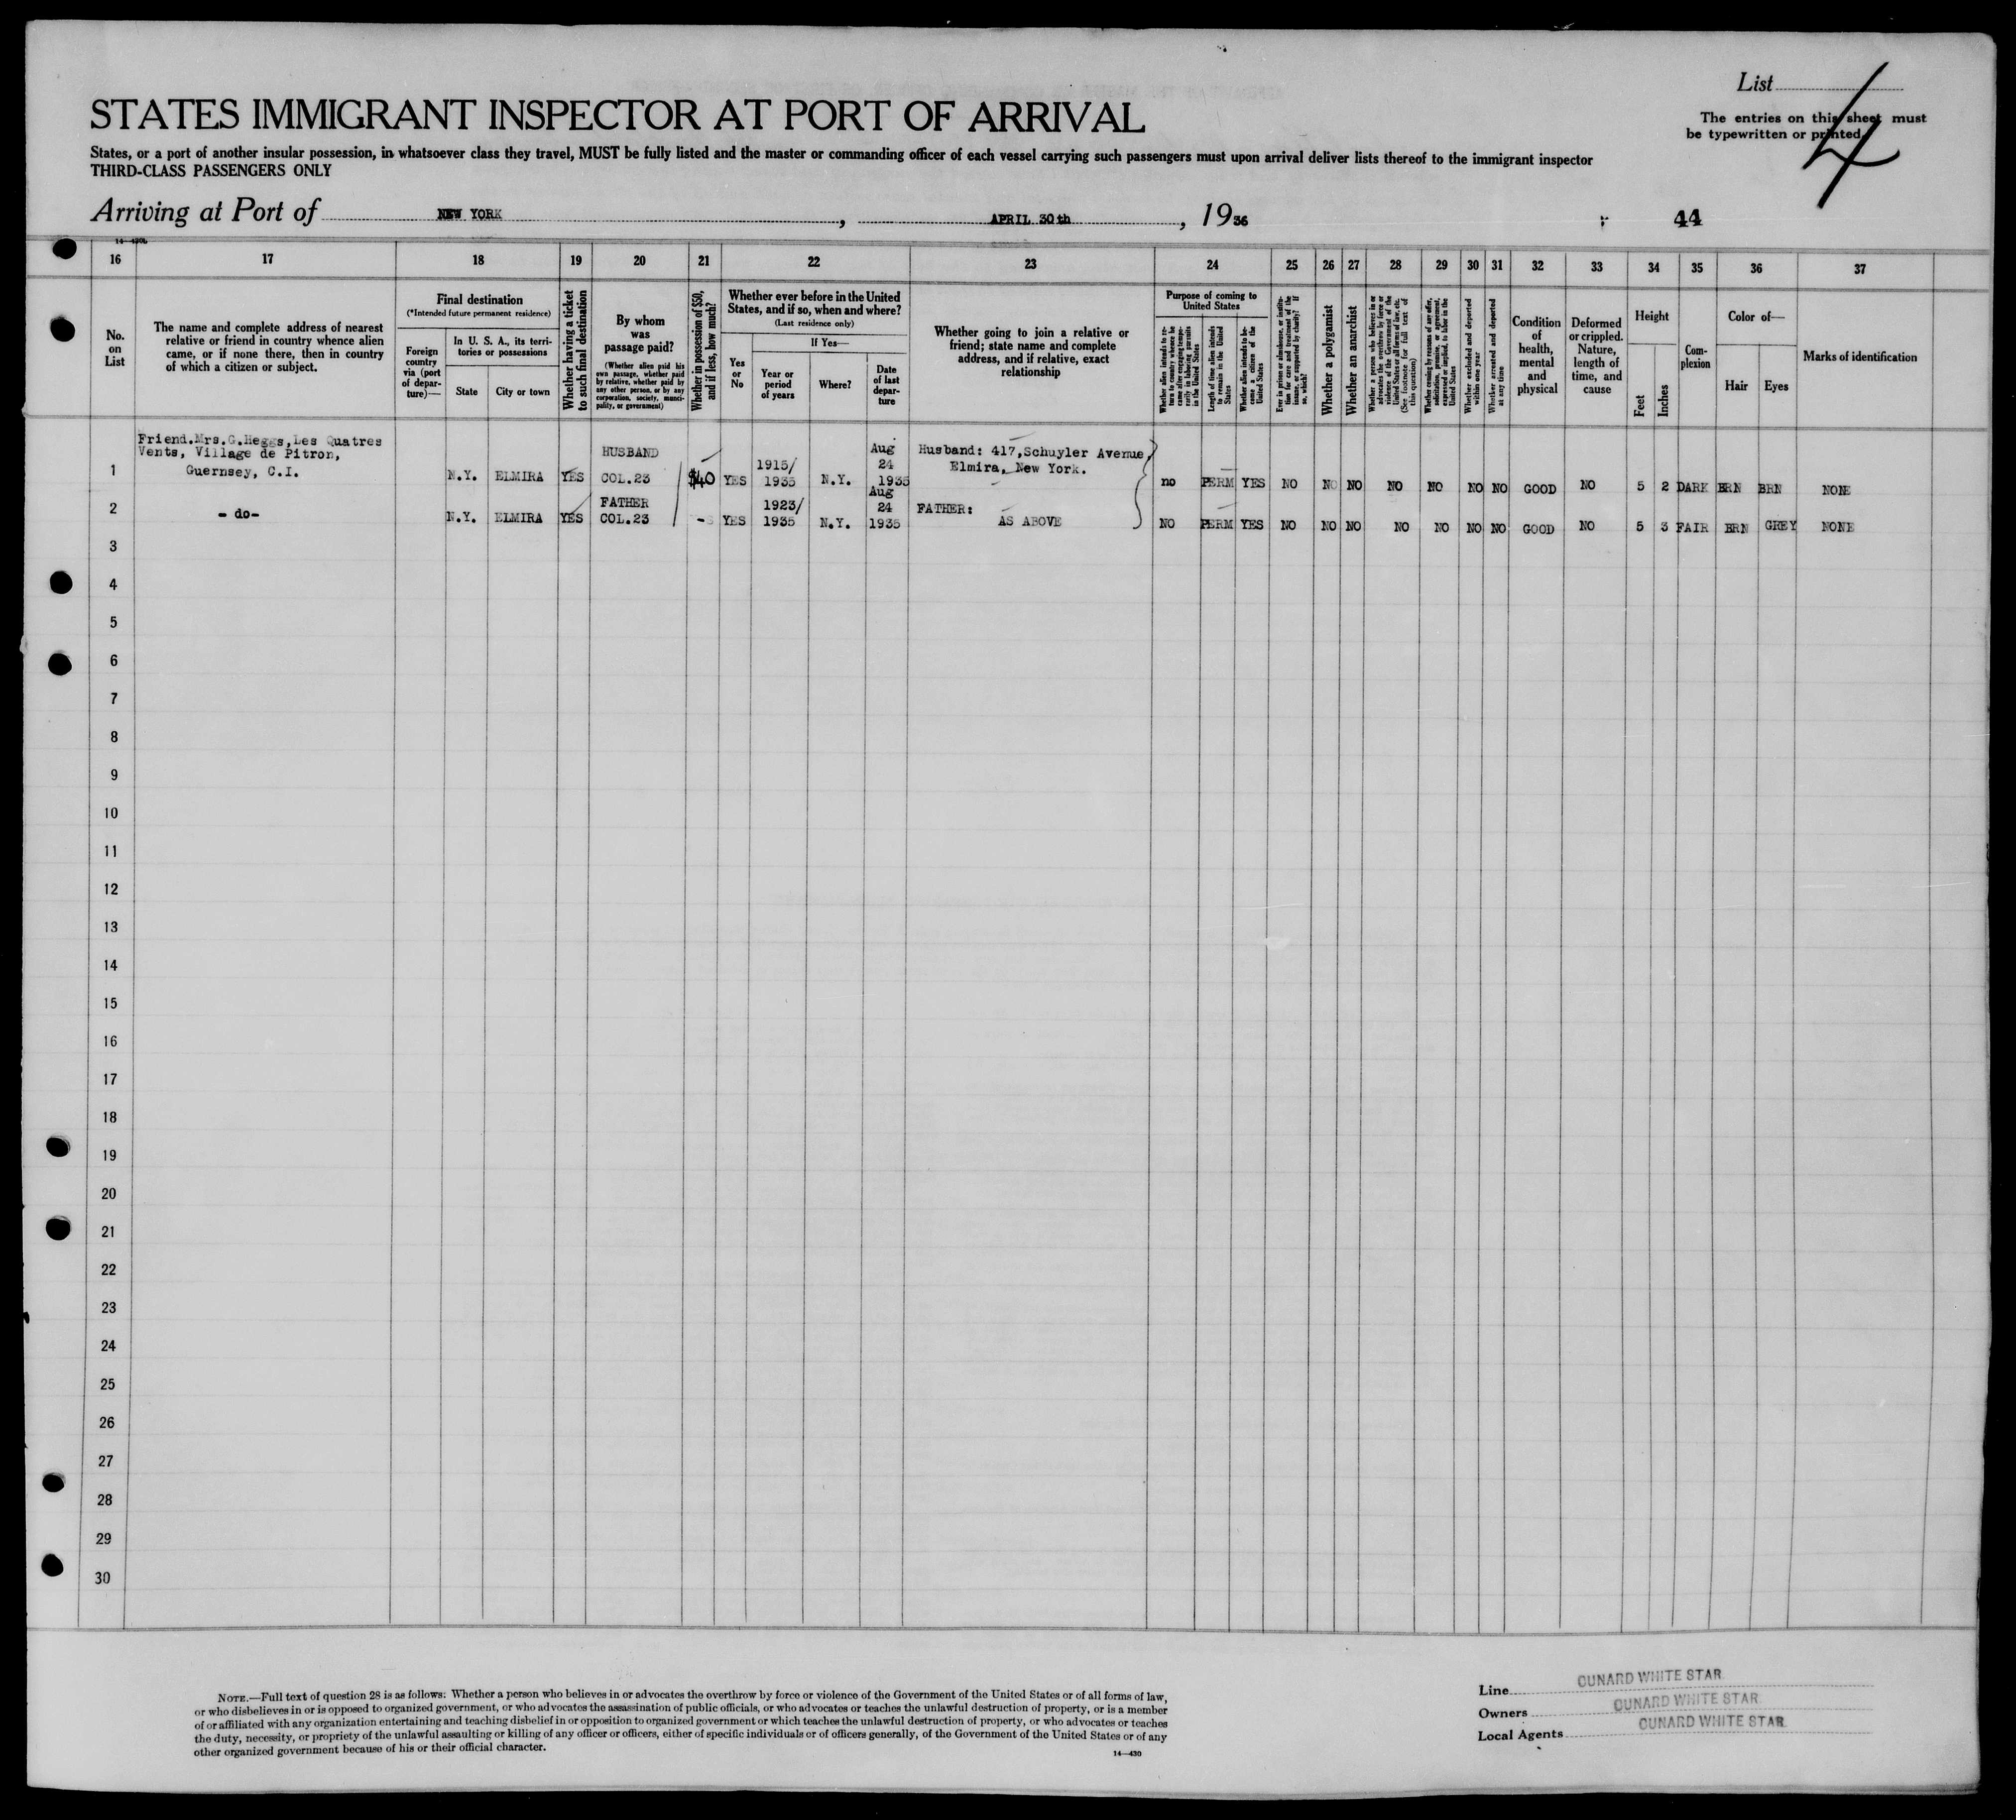 List 4
The entries on this sheet must
be typewritten or printed.
STATES IMMIGRANT INSPECTOR AT PORT OF ARRIVAL
States, or a port of another insular possession, in whatsoever class they travel, MUST be fully listed and the master or commanding officer of each vessel carrying such passengers must upon arrival deliver lists thereof to the immigrant inspector
THIRD-CLASS PASSENGERS ONLY
Arriving at Port of NEW YORK, APRIL 30th, 1936
44
16 17 18 19 20 21 22 23 24 25 26 27 28 29 30 31 32 33 34 35 36 37
No.
on
List
The name and complete address of nearest
relative or friend in country whence alien
came, or if none there, then in country
of which a citizen or subject.
Final destination
(*Intended future permanent residence)
Foreign
country
via (port
of depar-
ture)—
In U. S. A., its terri-
tories or possessions
State
City or town
Whether having a ticket
to such final destination
By whom
was
passage paid?
(Whether alien paid his
own passage, whether paid
by relative, whether paid by
any other person, or by any
corporation, society, munici-
pality, or government)
Whether in possession of $50,
and if less, how much?
Whether ever before in the United
States, and if so, when and where?
(Last residence only)
Yes
or
No
If Yes—
Year or
period
of years
Where?
Date
of last
depar-
ture
Whether going to join a relative or
friend; state name and complete
address, and if relative, exact
relationship
Purpose of coming to
United States
Whether alien intends to re-
turn to country whence he
came after engaging tempo-
rarily in laboring pursuits
in the United States
Length of time alien intends
to remain in the United
States
Whether alien intends to be-
come a citizen of the
United States
Ever in prison or almshouse, or institu-
tion for care and treatment of the
insane, or supported by charity? If
so, which?
Whether a polygamist
Whether an anarchist
Whether a person who believes in or
advocates the overthrow by force or
violence of the Government of the
United States or all forms of law, etc.
(See footnote for full text of
this question)
Whether coming by reasons of any offer,
solicitation, promise, or agreement,
expressed or implied, to labor in the
United States
Whether excluded and deported
within one year
Whether arrested and deported
at any time
Condition
of
health,
mental
and
physical
Deformed
or crippled.
Nature,
length of
time, and
cause
Height
Feet
Inches
Com-
plexion
Color of—
Hair
Eyes
Marks of identification
Friend.Mrs.G.Heggs,Les Quatres
Vents, Village de Pitron,
Guernsey, C.I.
1 N.Y. ELMIRA YES HUSBAND COL.23 $40 YES 1915/1935 N.Y. Aug 24 1935 Husband: 417,Schuyler Avenue,
Elmira, New York.
no PERM YES NO NO NO NO NO NO NO GOOD NO 5 2 DARK BRN BRN NONE
2 - do- N.Y. ELMIRA YES FATHER COL.23 - YES 1923/1935 N.Y. Aug 24 1935 FATHER:
AS ABOVE
NO PERM YES NO NO NO NO NO NO NO GOOD NO 5 3 FAIR BRN GREY NONE
3
4
5
6
7
8
9
10
11
12
13
14
15
16
17
18
19
20
21
22
23
24
25
26
27
28
29
30
NOTE.—Full text of question 28 is as follows: Whether a person who believes in or advocates the overthrow by force or violence of the Government of the United States or of all forms of law,
or who disbelieves in or is opposed to organized government, or who advocates the assassination of public officials, or who advocates or teaches the unlawful destruction of property, or is a member
of or affiliated with any organization entertaining and teaching disbelief in or opposition to organized government or which teaches the unlawful destruction of property, or who advocates or teaches
the duty, necessity, or propriety of the unlawful assaulting or killing of any officer or officers, either of specific individuals or of officers generally, of the Government of the United States or of any
other organized government because of his or their official character.
14—430
Line CUNARD WHITE STAR
Owners CUNARD WHITE STAR
Local Agents CUNARD WHITE STAR